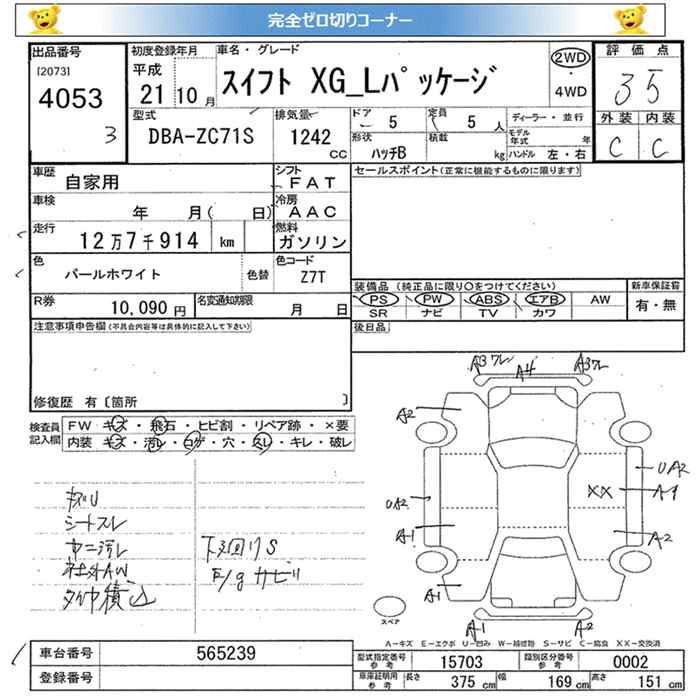 完全ゼロ切りコーナー
出品番号
[2073]
4053
3
初度登録年月
平成
21年 10月
車名・グレード
スイフト XG_Lパッケージ
2WD
4WD
評価点
3.5
外装 内装
C C
型式
DBA-ZC71S
排気量
1242
CC
ドア
5
定員
5人
形状
ハッチB
積載
kg
ディーラー・並行
モデル年式 年
ハンドル 左・右
車歴
自家用
シフト
FAT
車検
年 月( 日)
冷房
AAC
走行
12万7千914 km
燃料
ガソリン
色
パールホワイト
色替
色コード
Z7T
R券
10,090円
名変通知期限
月 日
セールスポイント(正常に機能するものに限ります)
装備品(純正品に限り○をつけてください)
PS PW ABS エアB AW
SR ナビ TV カワ
新車保証書
有・無
後日品
注意事項申告欄(不具合内容等は具体的に記入して下さい)
修復歴 有〔箇所 〕
検査員記入欄
FW キズ・飛石・ヒビ割・リペア跡・×要
内装 キズ・汚れ・コゲ・穴・スレ・キレ・破レ
シートスレ
社外AW
タイヤ積込
下回りS
E/gサビ
A3ワレ A4 A3ワレ
A2
UA2
UA2
XX A1
A1
A2
A1
A1 A2
スペア
A-キズ E-エクボ U-凹み W-補修跡 S-サビ C-腐食 XX-交換済
車台番号
565239
登録番号
型式指定番号 参考
15703
類別区分番号 参考
0002
車庫証明用 参考
長さ 375cm 幅 169cm 高さ 151cm